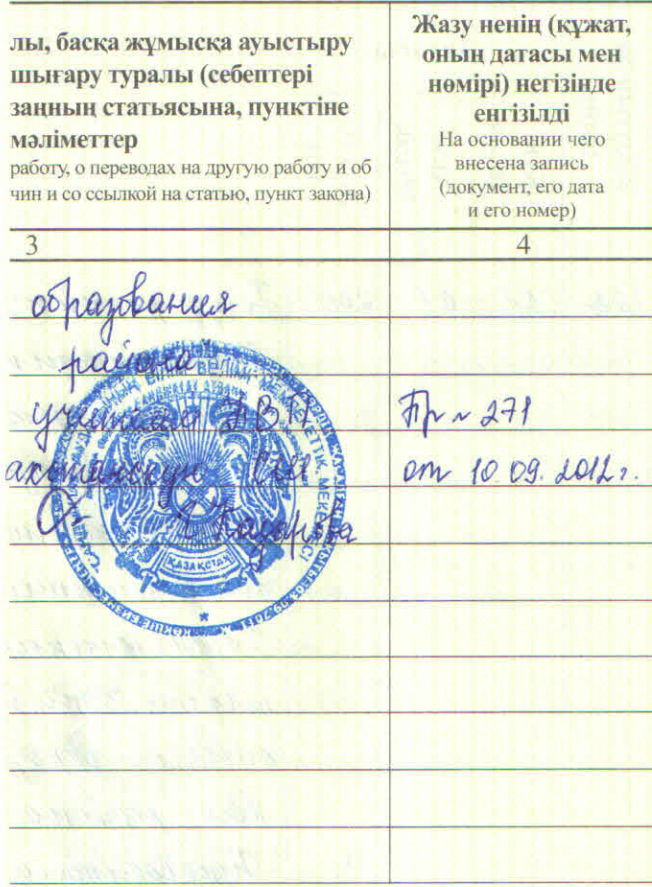 лы, басқа жұмысқа ауыстыру
шығару туралы (себептері
заңның статьясына, пунктіне
мәліметтер
работу, о переводах на другую работу и об
чин и со ссылкой на статью, пункт закона)
Жазу ненің (құжат,
оның датасы мен
нөмірі) негізінде
енгізілді
На основании чего
внесена запись
(документ, его дата
и его номер)
3
4
образования
района"
учителем НВП
Пр № 271
ахстанскую СШ
от 10.09.2012г.
А Кадырова
ҚАЗАҚСТАН